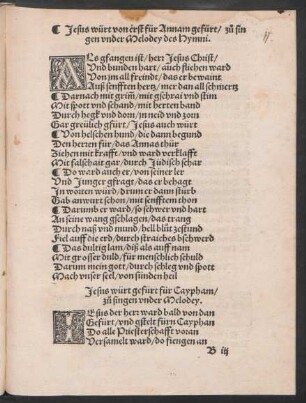 ¶ Jesus würt von erst für Annam gefürt / zů sin
gen vnder Melodey des Hymni.
ALs gfangen ist / herr Jesus Christ /
Vnd bunden hart / auch stichen ward
Von jm all freindt / das er bewaint
Auß senfften hertz / mer dan all schmertz
¶ Darnach mit grim / mit gschrai vnd stim
Mit spott vnd schand / mit herten band
Durch hegk vnd dorn / in neid vnd zorn
Gar greülich gfürt / Jesus auch würt
¶ Von helschen hund / die dann begund
Den herren für / das Annas thür
Ziehen mit krafft / vnd ward verklafft
Mit falschait gar / durch Judisch schar
¶ Do ward auch er / von seiner ler
Vnd Junger gfragt / das er behagt
In worten würd / drum er dann stürb
Gab anwurt schon / mit senfftem thon
¶ Darumb er ward / so schwer vnd hart
An seim wang gschlagen / das trang
Durch naß vnd mund / hell blůt zestund
Fiel auff die erd / durch straiches bschwerd
¶ Das dultig lam / diß als auff nam
Mit grosser duld / für menschlich schuld
Darum mein gott / durch schleg vnd spott
Mach vnser seel / von sünden heil
Jesus würt gefürt für Cayphan /
zů singen vnder Melodey.
IEsus der herr ward bald von dan
Gefürt / vnd gstelt fürn Cayphan
Do alle Priesterschafft voran
Versamelt ward / do fiengen an
B iij